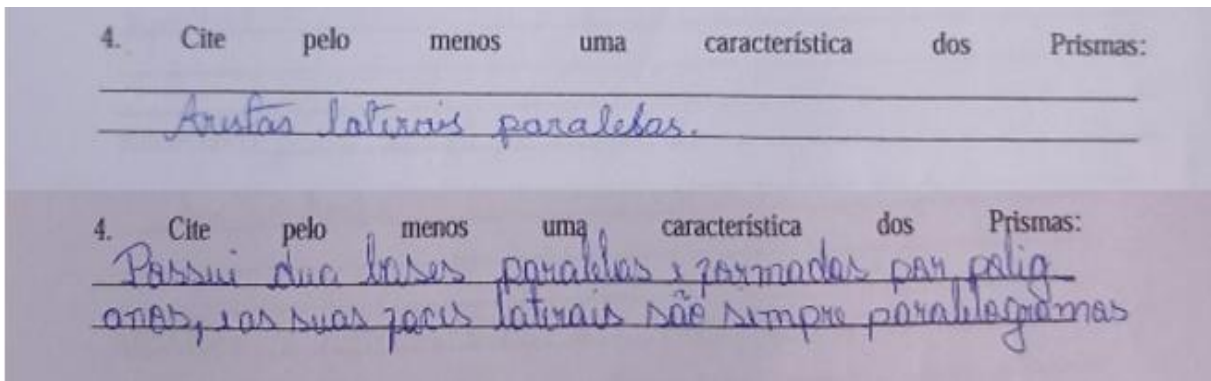 4. Cite pelo menos uma característica dos Prismas:
Arestas laterais paralelas.
4. Cite pelo menos uma característica dos Prismas:
Possui dua bases paralelas e formadas por polig
onos, e as suas faces laterais são sempre paralelogramas